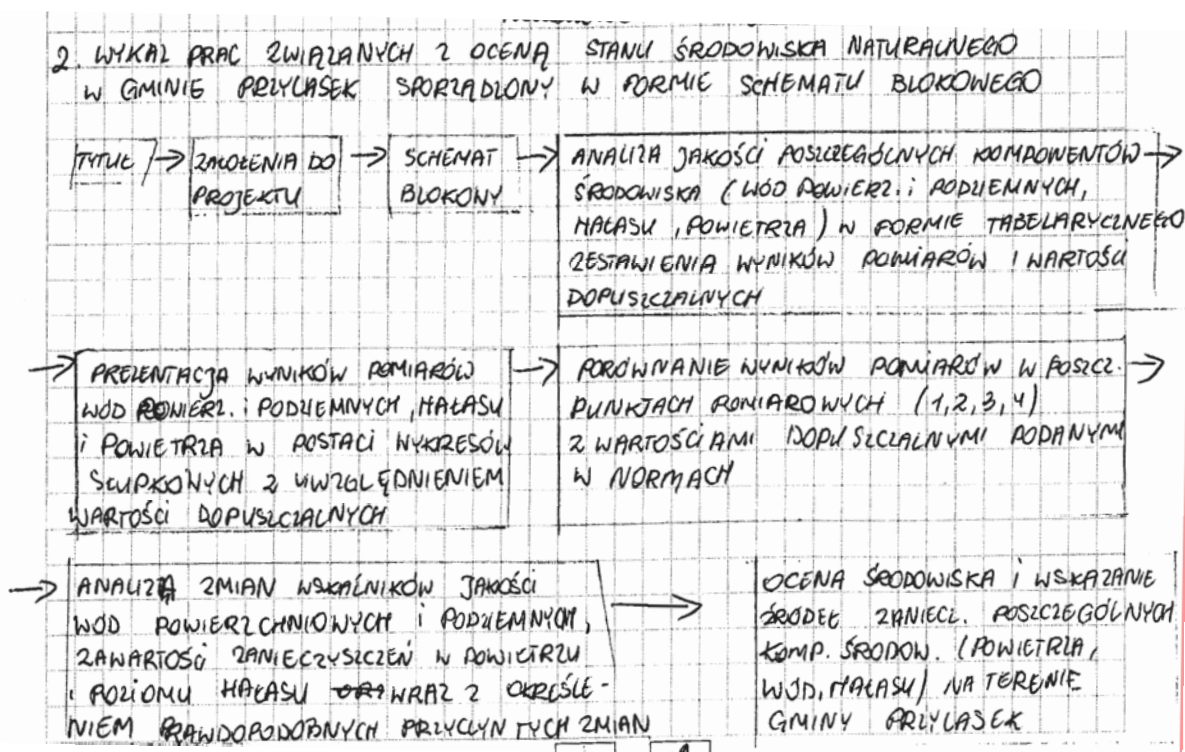 2. WYKAZ PRAC ZWIĄZANYCH Z OCENĄ STANU ŚRODOWISKA NATURALNEGO
W GMINIE PRZYLASEK SPORZĄDZONY W FORMIE SCHEMATU BLOKOWEGO
TYTUŁ
ZAŁOŻENIA DO
PROJEKTU
SCHEMAT
BLOKOWY
ANALIZA JAKOŚCI POSZCZEGÓLNYCH KOMPONENTÓW
ŚRODOWISKA (WÓD POWIERZ. i PODZIEMNYCH,
HAŁASU, POWIETRZA) W FORMIE TABELARYCZNEGO
ZESTAWIENIA WYNIKÓW POMIARÓW I WARTOŚCI
DOPUSZCZALNYCH
PREZENTACJA WYNIKÓW POMIARÓW
WÓD POWIERZ. i PODZIEMNYCH, HAŁASU
i POWIETRZA W POSTACI WYKRESÓW
SŁUPKOWYCH Z UWZGLĘDNIENIEM
WARTOŚCI DOPUSZCZALNYCH
PORÓWNANIE WYNIKÓW POMIARÓW W POSZCZ.
PUNKTACH POMIAROWYCH (1,2,3,4)
Z WARTOŚCIAMI DOPUSZCZALNYMI PODANYMI
W NORMACH
ANALIZA ZMIAN WSKAŹNIKÓW JAKOŚCI
WÓD POWIERZCHNIOWYCH i PODZIEMNYCH,
ZAWARTOŚCI ZANIECZYSZCZEŃ W POWIETRZU
i POZIOMU HAŁASU WRAZ Z OKREŚLE-
NIEM PRAWDOPODOBNYCH PRZYCZYN TYCH ZMIAN
OCENA ŚRODOWISKA i WSKAZANIE
ŹRÓDEŁ ZANIECZ. POSZCZEGÓLNYCH
KOMP. ŚRODOW. (POWIETRZA,
WÓD, HAŁASU) NA TERENIE
GMINY PRZYLASEK